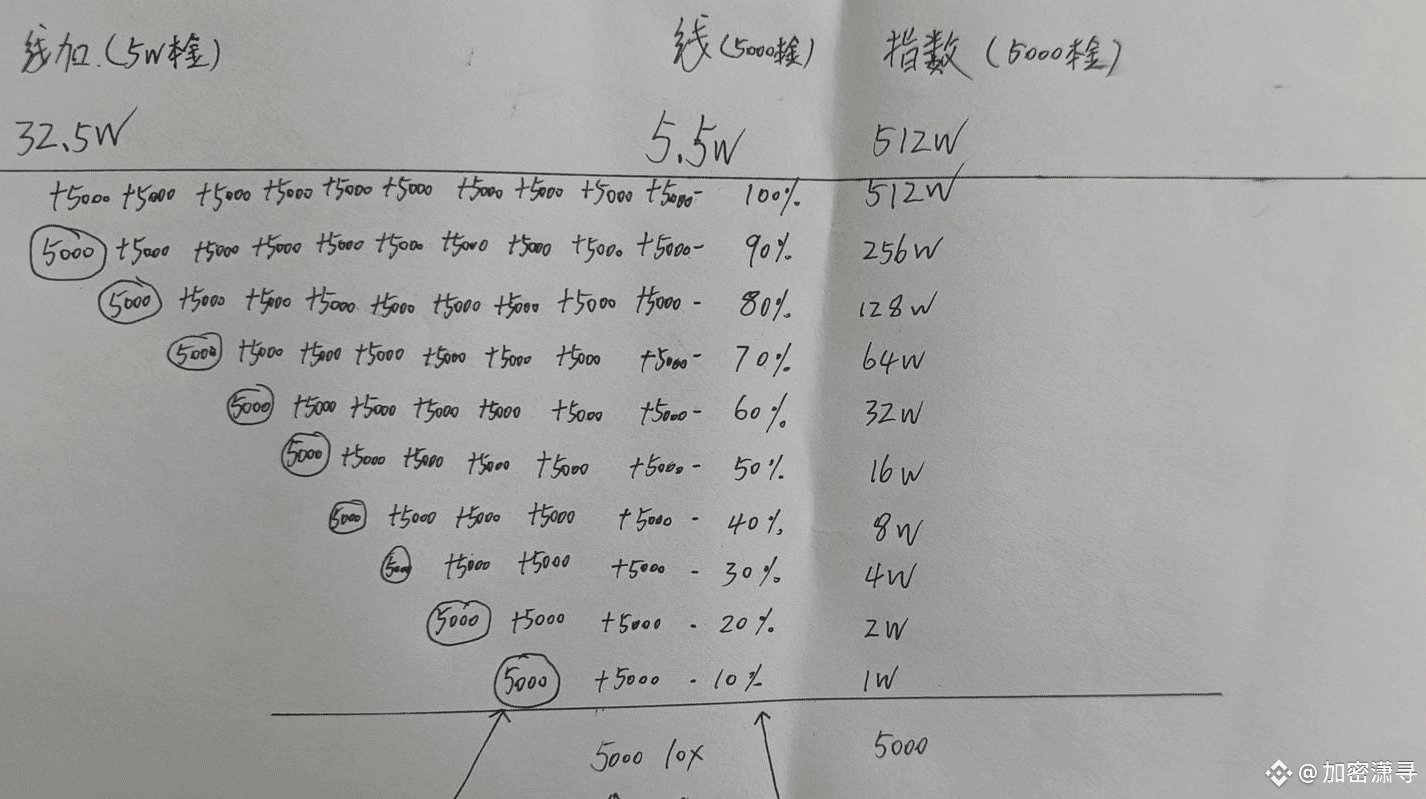 线加.(5W本金) 线(5000本金) 指数(5000本金)
32.5W 5.5W 512W
+5000 +5000 +5000 +5000 +5000 +5000 +5000 +5000 +5000 +5000- 100% 512W
5000 +5000 +5000 +5000 +5000 +5000 +5000 +5000 +5000 +5000- 90% 256W
5000 +5000 +5000 +5000 +5000 +5000 +5000 +5000 +5000 - 80% 128W
5000 +5000 +5000 +5000 +5000 +5000 +5000 +5000- 70% 64W
5000 +5000 +5000 +5000 +5000 +5000 +5000- 60% 32W
5000 +5000 +5000 +5000 +5000 +5000- 50% 16W
5000 +5000 +5000 +5000 +5000 - 40% 8W
5000 +5000 +5000 +5000 - 30% 4W
5000 +5000 +5000 - 20% 2W
5000 +5000 - 10% 1W
5000 10X 5000
@加密潇寻